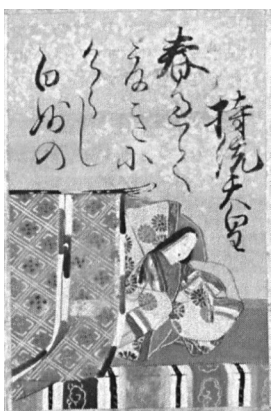 持統天皇
春過て
夏きに
けらし
白妙の